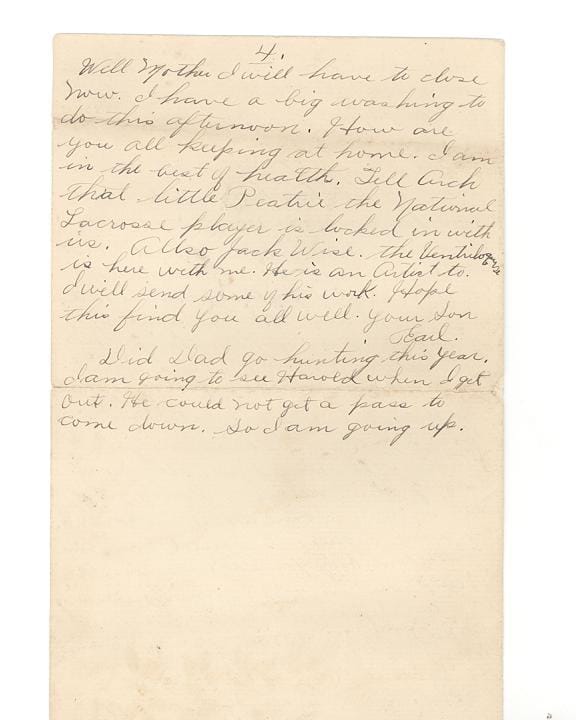 4.
Well Mother I will have to close
now. I have a big washing to
do this afternoon. How are
you all keeping at home. I am
in the best of health. Tell Arch
that little Peatrie the National
Lacrosse player is locked in with
us. Allso Jack Wise. the Ventriloquist
is here with me. He is an Artist to.
I will send some of his work. Hope
this find you all well. your Son
Earl.
Did Dad go hunting this year.
I am going to see Harold when I get
out. He could not get a pass to
come down. So I am going up.